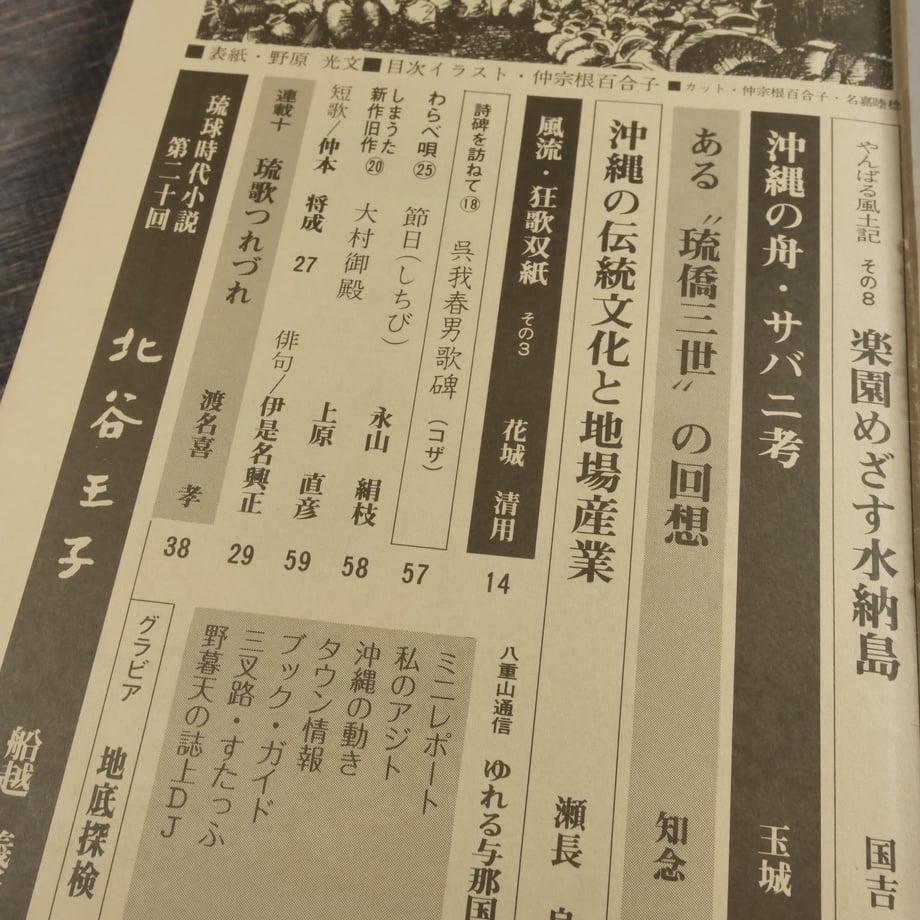 ■表紙・野原 光文■目次イラスト・仲宗根百合子■カット・仲宗根百合子・名嘉睦稔
やんばる風土記 その8 楽園めざす水納島 国吉
沖縄の舟・サバニ考 玉城
ある〝琉僑三世〟の回想 知念
沖縄の伝統文化と地場産業 瀬長
風流・狂歌双紙 その3 花城 清用 14
詩碑を訪ねて⑱ 呉我春男歌碑(コザ) 57
わらべ唄㉕ 節日(しちび) 永山 絹枝 58
しまうた
新作旧作⑳ 大村御殿 上原 直彦 59
短歌/仲本 将成 27 俳句/伊是名興正 29
連載十 琉歌つれづれ 渡名喜 孝 38
琉球時代小説
第二十回 北谷王子 船越
八重山通信 ゆれる与那国
ミニレポート
私のアジト
沖縄の動き
タウン情報
ブック・ガイド
三叉路・すたっふ
野暮天の誌上DJ
グラビア 地底探検